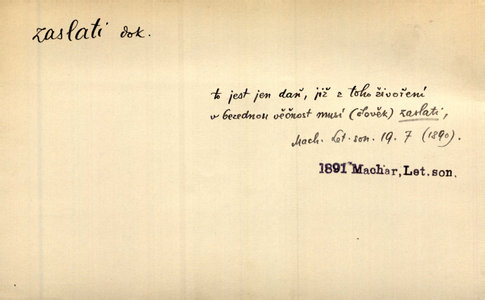 zaslati dok.
to jest jen daň, již z toho živoření
v bezednou věčnost musí (člověk) zaslati,
Mach. Let. son. 19. 7 (1890).
1891 Machar, Let. son.